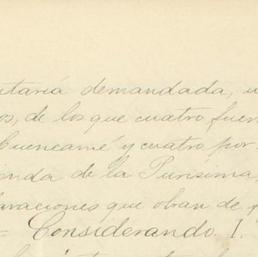 itaria demandada, u
os, de los que cuatro fuer
Cuencamé y cuatro por
enda de la Purisima,
laraciones que obran de f
= Considerando I.